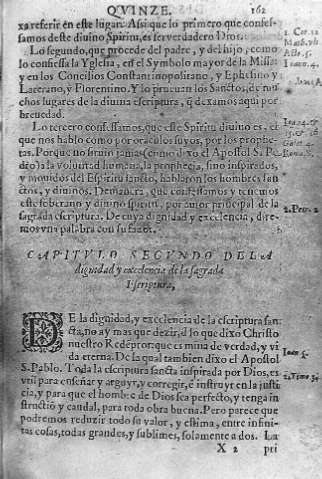 QVINZE. 162
xa referir en este lugar. Assi que lo primero que confes-
samos deste diuino Spiritu, es ser verdadero Dios.
Lo segundo, que procede del padre, y del hijo, como
lo confiessa la Yglesia, en el Symbolo mayor de la Missa:
y en los Concilios Constantinopolitano, y Ephesino y
Laterano, y Florentino. Y lo prueuan los Sanctos, de mu
chos lugares de la diuina escriptura, q̃ dexamos aqui por
breuedad.
Lo tercero confessamos, que este Spiritu diuino es, el
que nos hablo como por oraculos suyos, por los prophe-
tas. Porque no siruio jamas (como dixo el Apostol S. Pe
dro) a la voluntad humana, la prophecia, sino inspirados,
y mouidos del Espiritu sancto, hablaron los hombres san
ctos, y diuinos. De manera, que confessamos y tenemos
este soberano y diuino spiritu, por autor principal de la
sagrada escriptura. De cuya dignidad y excelencia, dire-
mos vna palabra con su fauor.
CAPITVLO SEGVNDO DE LA
dignidad y excelencia de la sagrada
Escriptura,
DE la dignidad, y excelencia de la escriptura san
cta, no ay mas que dezir, d lo que dixo Christo
nuestro Redẽptor: que es mina de verdad, y vi
da eterna. De la qual tambien dixo el Apostol
S. Pablo. Toda la escriptura sancta inspirada por Dios, es
vtil para enseñar y arguyr, y corregir, è instruyr en la justi
cia, y para que el hombre de Dios sea perfecto, y tenga in
structiõ y caudal, para toda obra buena. Pero parece que
podremos reduzir todo su valor, y estima, entre infini-
tas cosas, todas grandes, y sublimes, solamente a dos. La
X 2 pri
1. Cor. 12
Act. 5.
Ioan. 4.
2. Pet. 1
Ioan. 5.
2. Timo. 3.